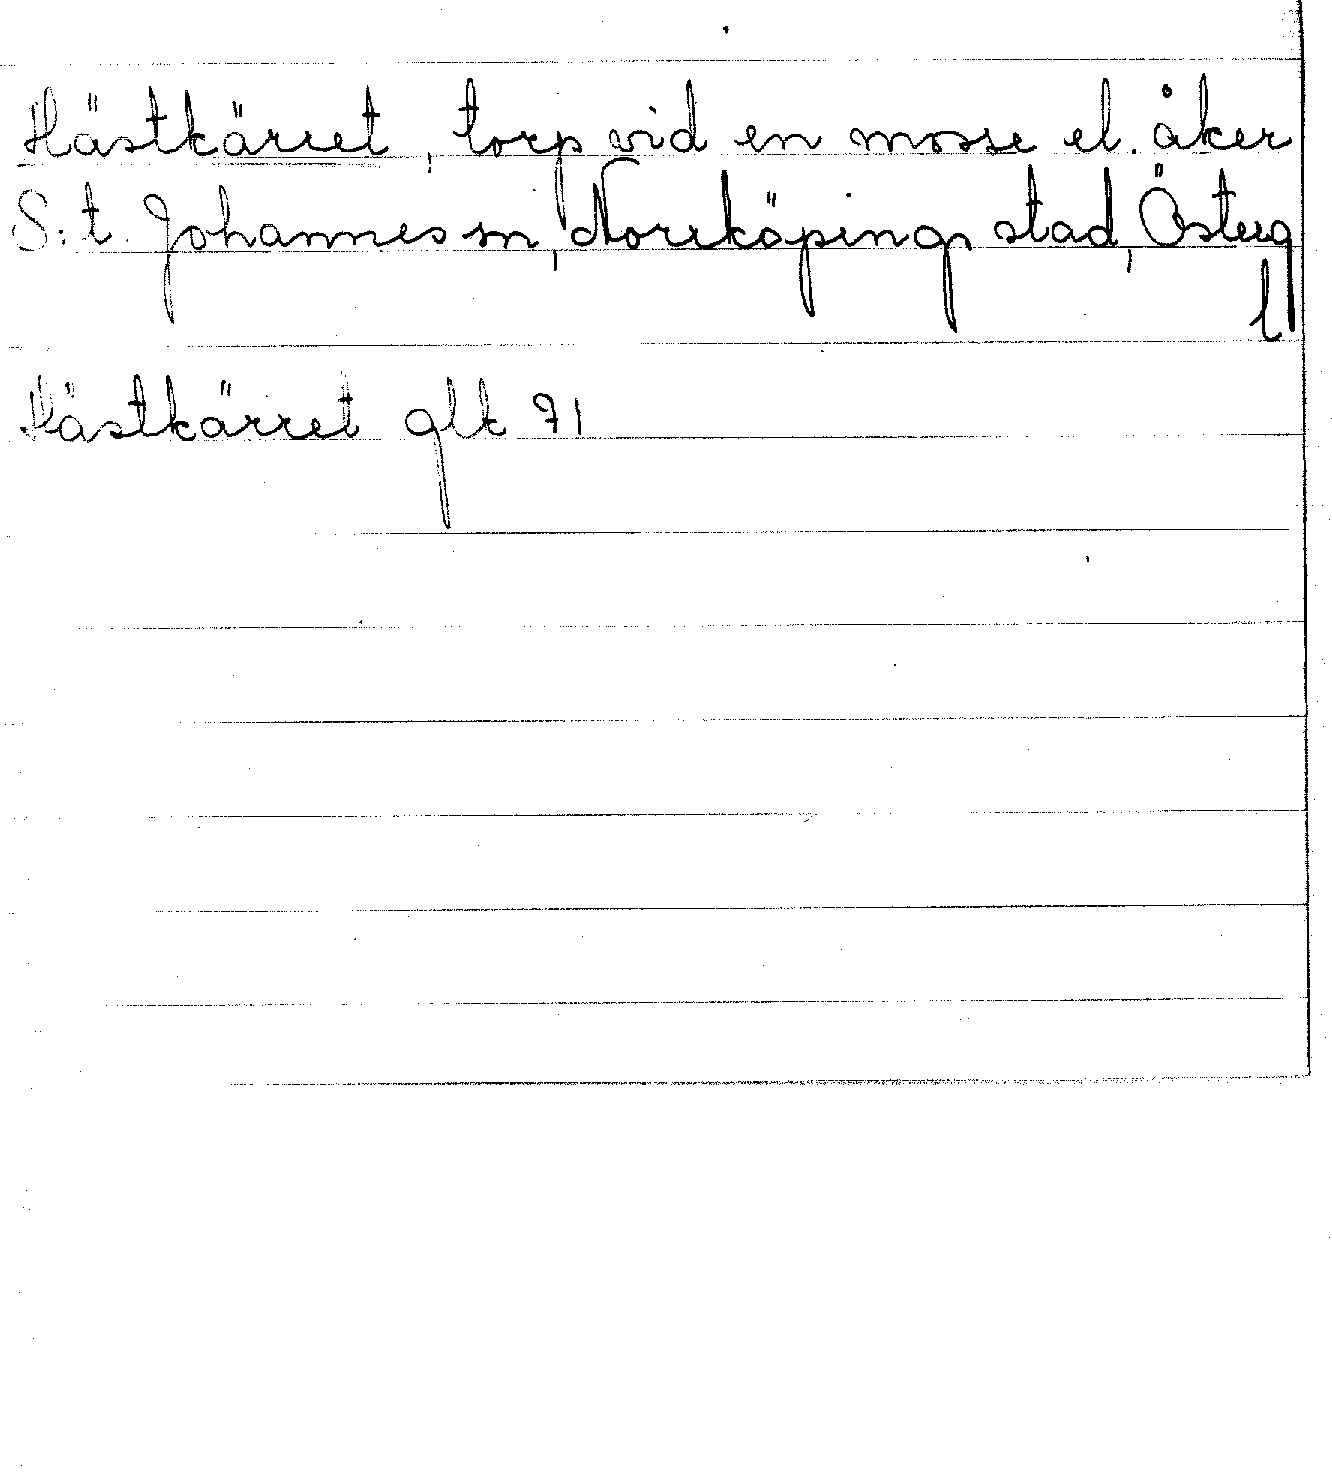 Hästkärret, torp vid en mosse el. åker
S:t. Johannes sn, Norrköpings stad, Österg
l
Hästkärret glk 71